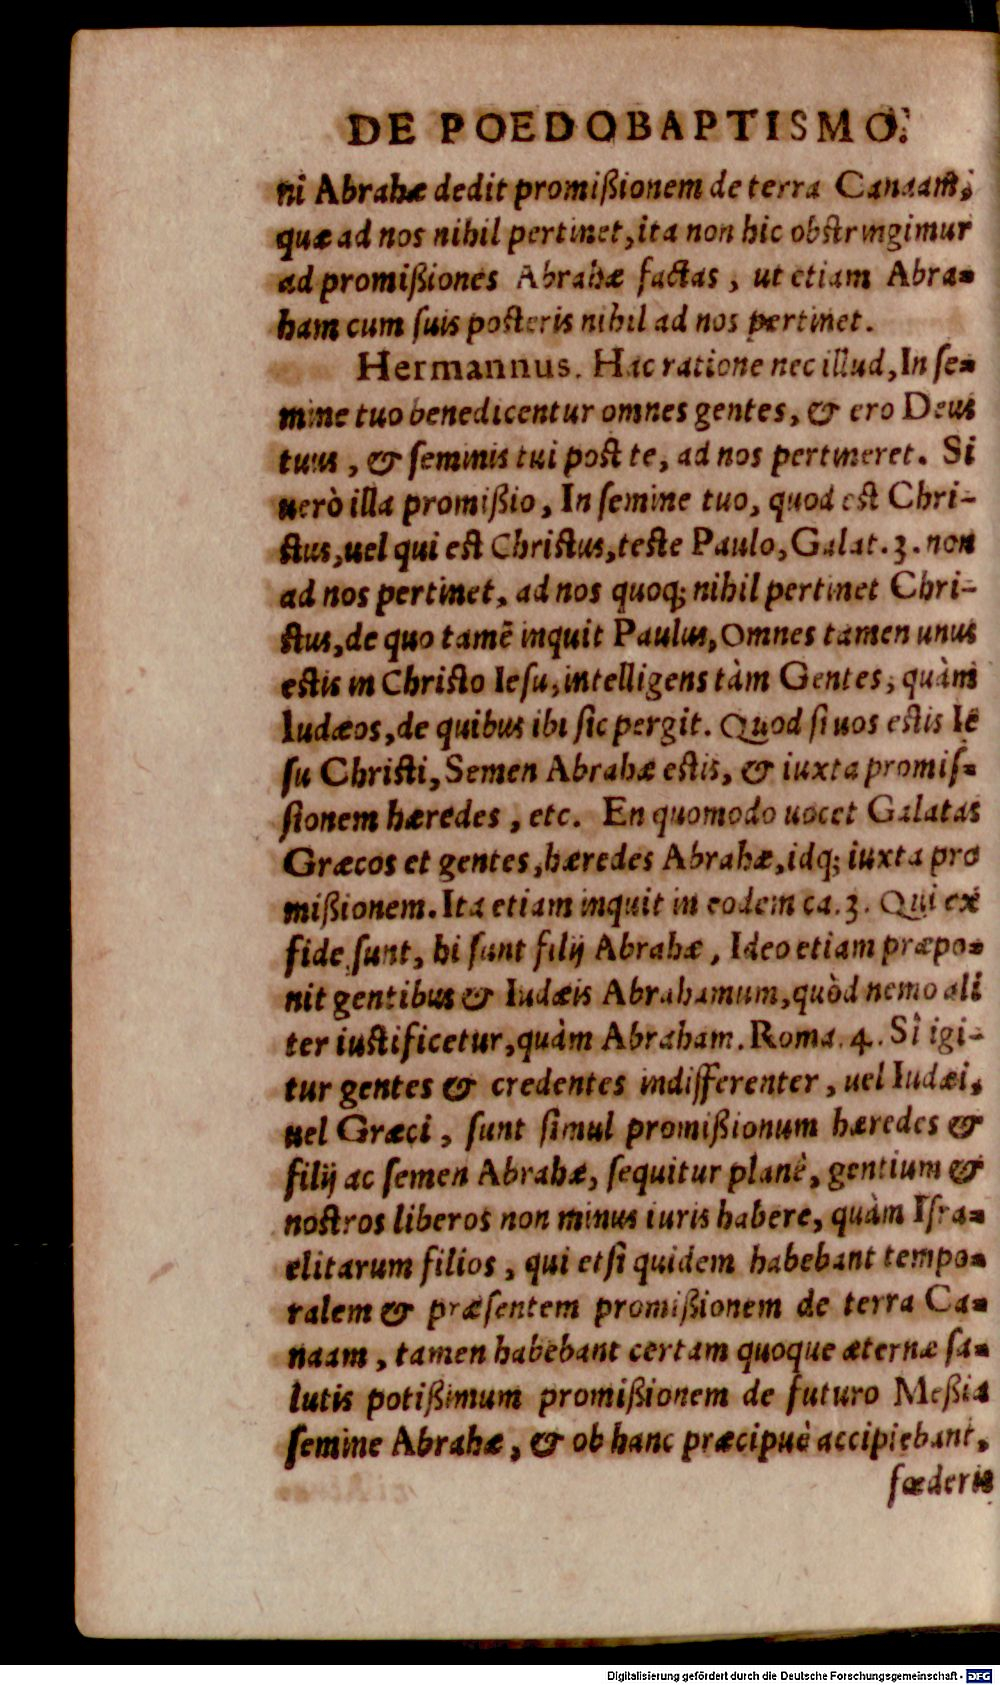 DE POEDOBAPTISMO.
ni Abrahæ dedit promißionem de terra Canaam,
quæ ad nos nihil pertinet, ita non hic obstringimur
ad promißiones Abrahæ factas, ut etiam Abra-
ham cum suis posteris nihil ad nos pertinet.
Hermannus. Hac ratione nec illud, In se-
mine tuo benedicentur omnes gentes, & ero Deus
tuus, & seminis tui post te, ad nos pertineret. Si
uerò illa promißio, In semine tuo, quod est Chri-
stus, uel qui est Christus, teste Paulo, Galat. 3. non
ad nos pertinet, ad nos quoq; nihil pertinet Chri-
stus, de quo tamē inquit Paulus, Omnes tamen unus
estis in Christo Iesu, intelligens tàm Gentes, quàm
Iudæos, de quibus ibi sic pergit. Quod si uos estis Ie
su Christi, Semen Abrahæ estis, & iuxta promis-
sionem hæredes, etc. En quomodo uocet Galatas
Græcos et gentes, hæredes Abrahæ, idq; iuxta pro
mißionem. Ita etiam inquit in eodem ca. 3. Qui ex
fide sunt, hi sunt filij Abrahæ, Ideo etiam præpo-
nit gentibus & Iudæis Abrahamum, quòd nemo ali
ter iustificetur, quàm Abraham. Roma. 4. Si igi-
tur gentes & credentes indifferenter, uel Iudæi,
uel Græci, sunt simul promißionum hæredes &
filij ac semen Abrahæ, sequitur planè, gentium &
nostros liberos non minus iuris habere, quàm Isra-
elitarum filios, qui etsi quidem habebant tempo-
ralem & præsentem promißionem de terra Ca-
naam, tamen habebant certam quoque æternæ sa-
lutis potißimum promißionem de futuro Meßia
semine Abrahæ, & ob hanc præcipuè accipiebant,
fœderis
Digitalisierung gefördert durch die Deutsche Forschungsgemeinschaft - DFG